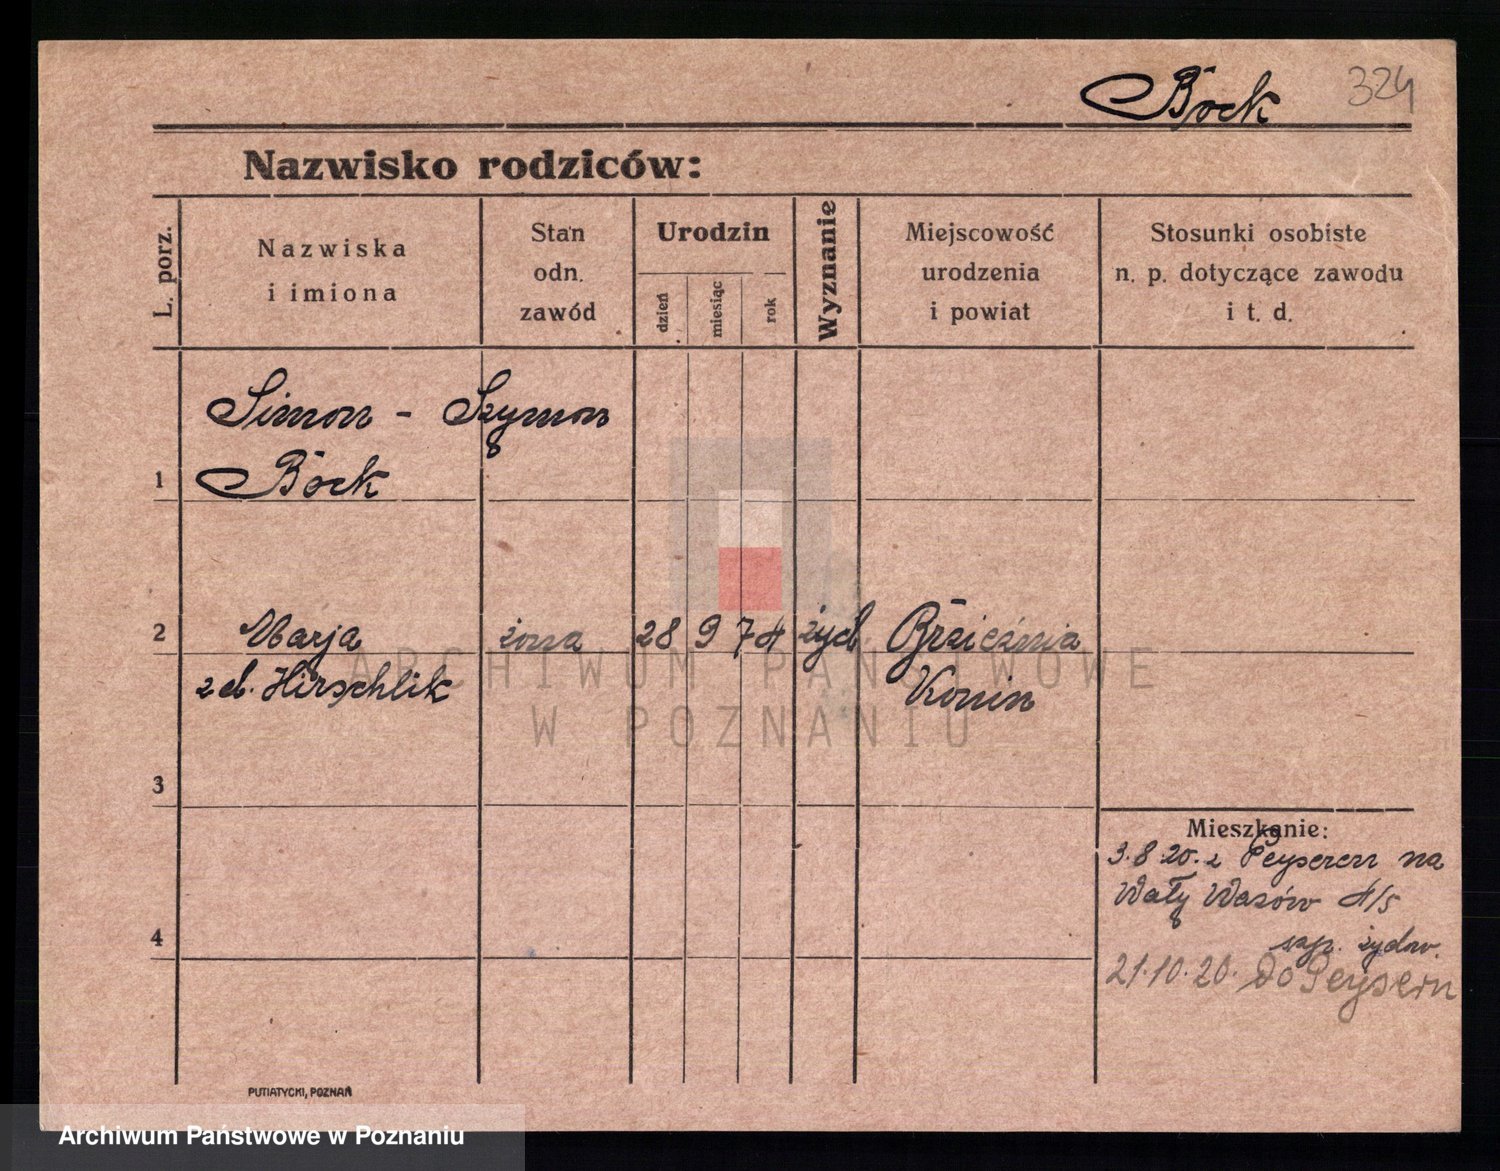 Böck 324
Nazwisko rodziców:
L. porz.
Nazwiska
i imiona
Stan
odn.
zawód
Urodzin
dzień
miesiąc
rok
Wyznanie
Miejscowość
urodzenia
i powiat
Stosunki osobiste
n. p. dotyczące zawodu
i t. d.
Simon - Szymon
1 Böck
2 Marja żona 28 9 74 żyd. Brzieźnia
z d. Hirschlik Konin
3
4
Mieszkanie:
3.8.20. z Peysern na
Wały Wazów 4/5
szp. żydow.
21.10.20. Do Peysern
PUTIATYCKI, POZNAŃ
ARCHIWUM PAŃSTWOWE
W POZNANIU
Archiwum Państwowe w Poznaniu